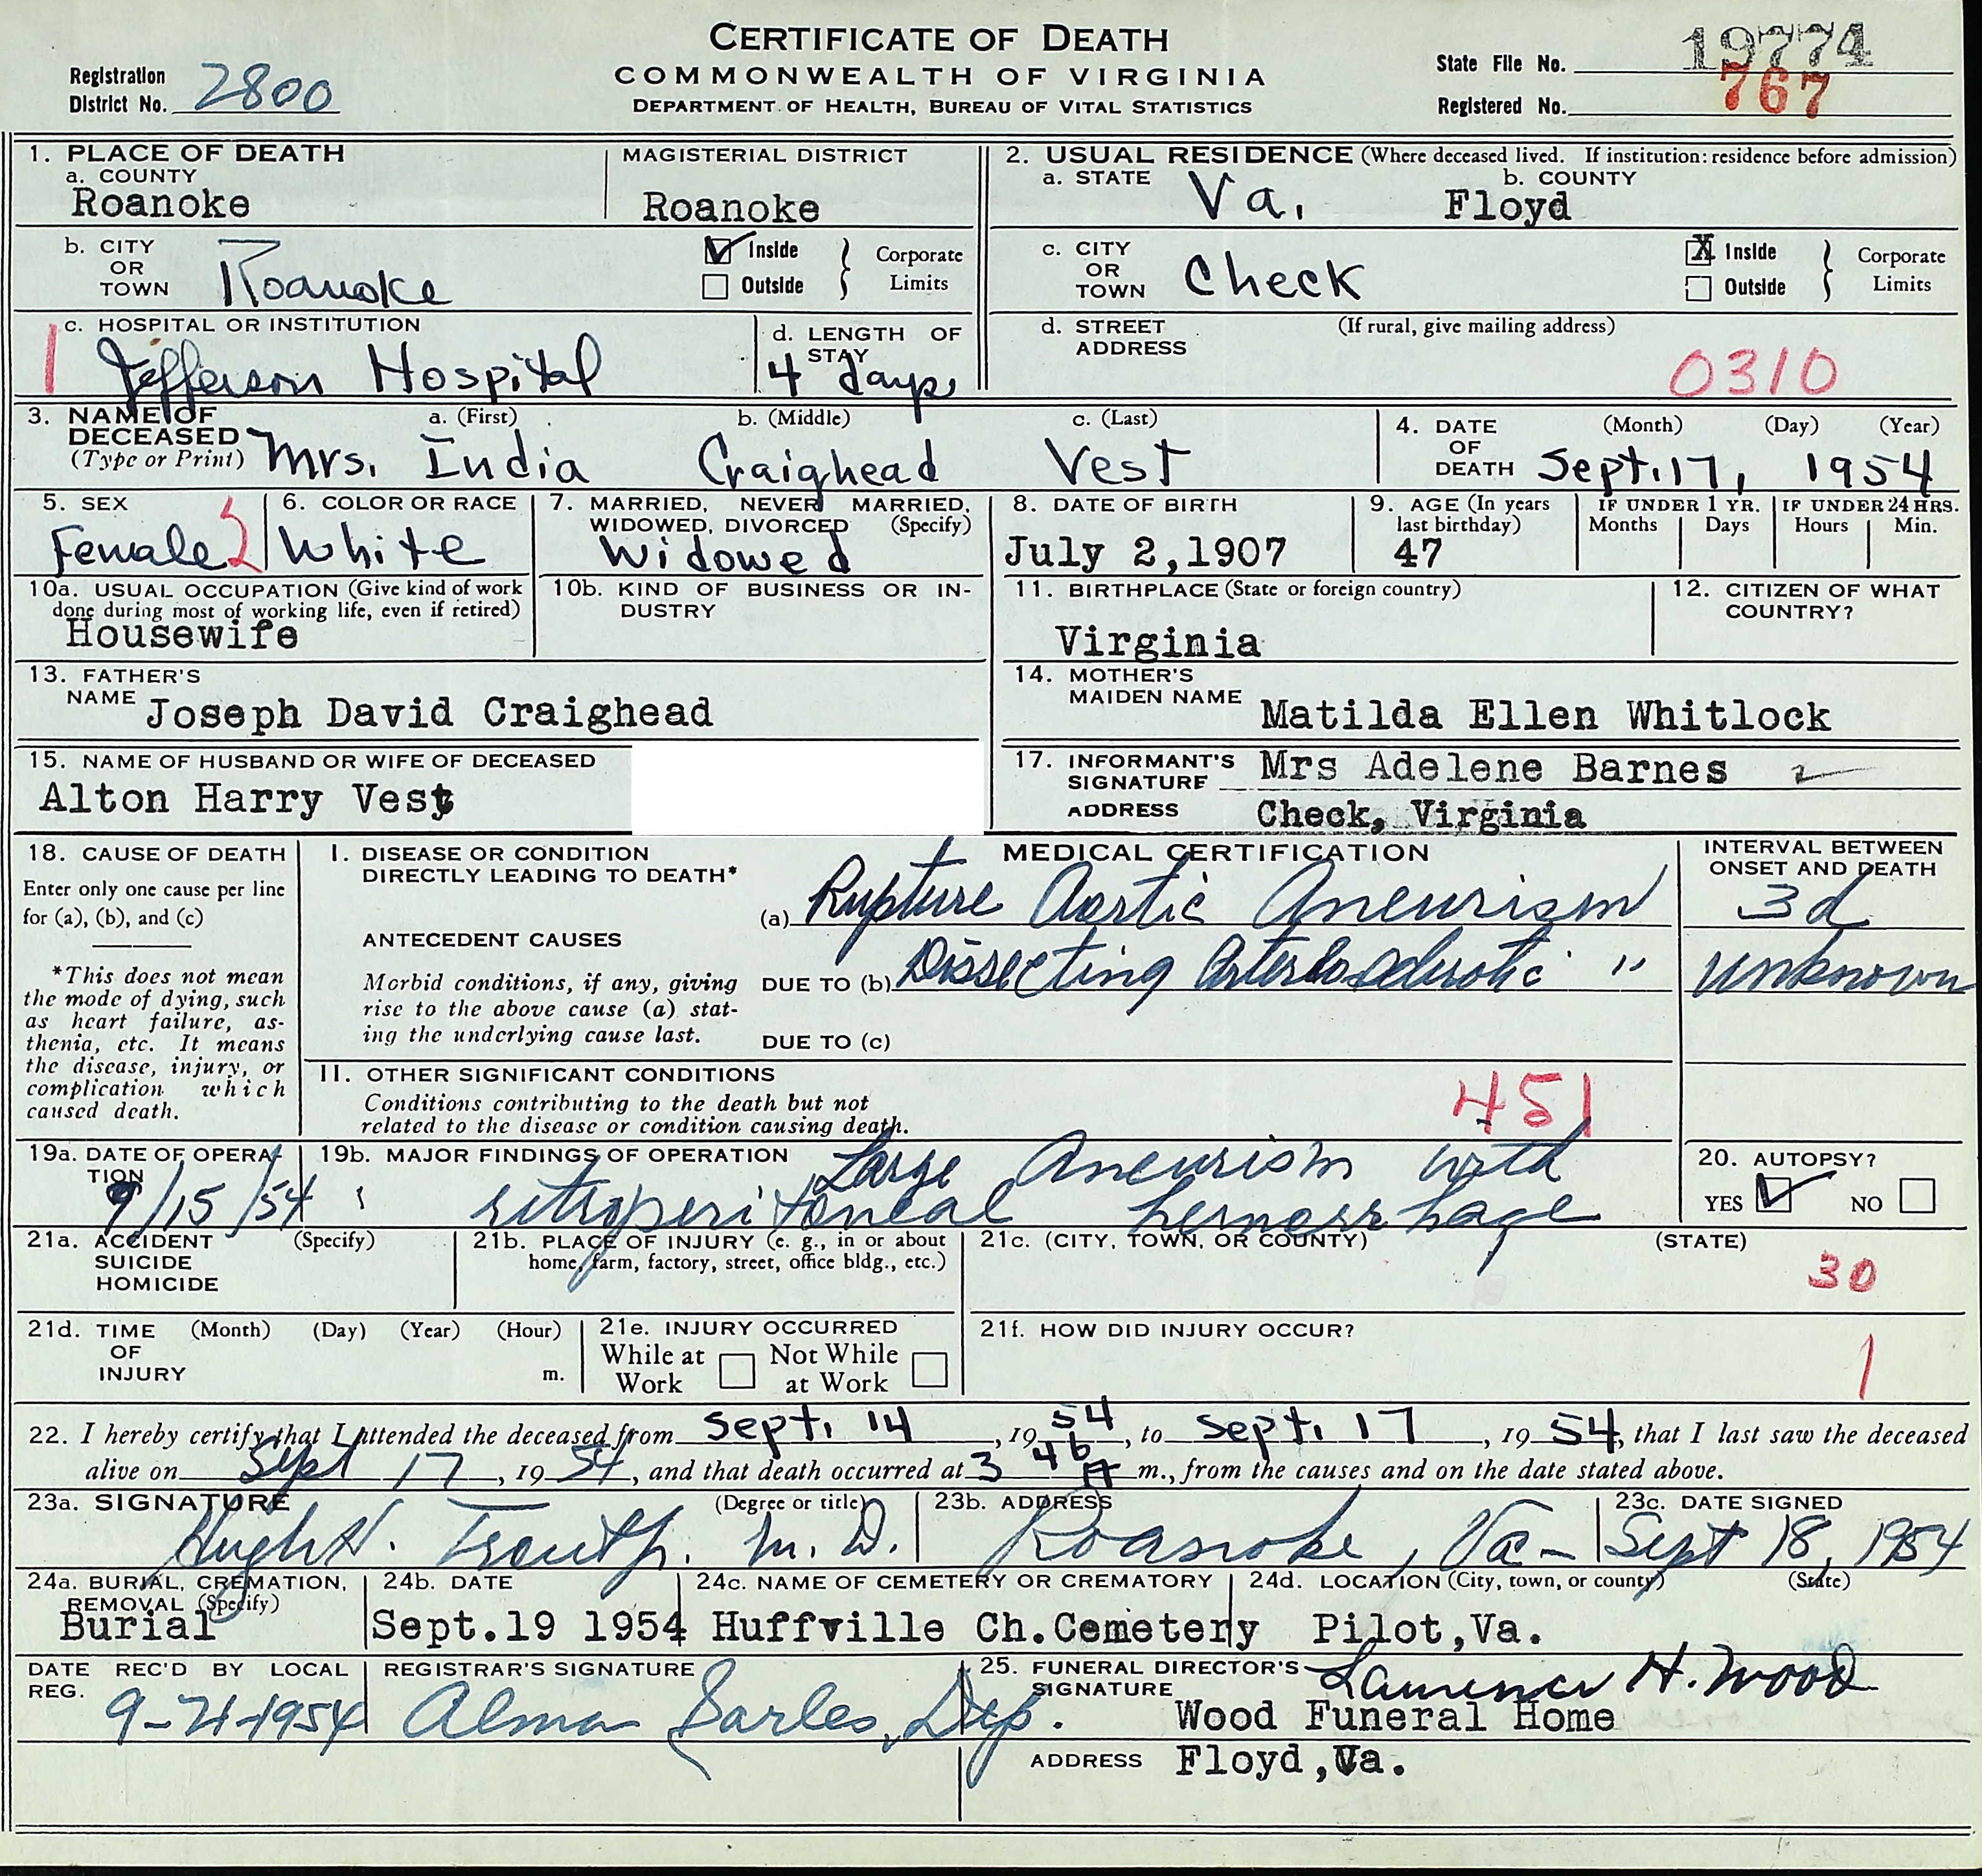 CERTIFICATE OF DEATH
COMMONWEALTH OF VIRGINIA
DEPARTMENT OF HEALTH, BUREAU OF VITAL STATISTICS
Registration District No. 2800
State File No. 19774
Registered No. 767
1. PLACE OF DEATH
a. COUNTY
Roanoke
MAGISTERIAL DISTRICT
Roanoke
2. USUAL RESIDENCE (Where deceased lived. If institution: residence before admission)
a. STATE Va.
b. COUNTY
Floyd
b. CITY OR TOWN Roanoke
Inside
Outside
Corporate Limits
c. CITY OR TOWN Check
X Inside
Outside
Corporate Limits
c. HOSPITAL OR INSTITUTION
1 Jefferson Hospital
d. LENGTH OF STAY
4 days
d. STREET ADDRESS
(If rural, give mailing address)
0310
3. NAME OF DECEASED
(Type or Print)
a. (First) b. (Middle) c. (Last)
Mrs. India Craighead Vest
4. DATE OF DEATH
(Month) (Day) (Year)
Sept. 17, 1954
5. SEX
Female
6. COLOR OR RACE
White
7. MARRIED, NEVER MARRIED, WIDOWED, DIVORCED (Specify)
Widowed
8. DATE OF BIRTH
July 2,1907
9. AGE (In years last birthday)
47
IF UNDER 1 YR.
Months Days
IF UNDER 24 HRS.
Hours Min.
10a. USUAL OCCUPATION (Give kind of work done during most of working life, even if retired)
Housewife
10b. KIND OF BUSINESS OR INDUSTRY
11. BIRTHPLACE (State or foreign country)
Virginia
12. CITIZEN OF WHAT COUNTRY?
13. FATHER'S NAME
Joseph David Craighead
14. MOTHER'S MAIDEN NAME
Matilda Ellen Whitlock
15. NAME OF HUSBAND OR WIFE OF DECEASED
Alton Harry Vest
17. INFORMANT'S SIGNATURE Mrs Adelene Barnes 2
ADDRESS Check, Virginia
18. CAUSE OF DEATH
Enter only one cause per line for (a), (b), and (c)
*This does not mean the mode of dying, such as heart failure, asthenia, etc. It means the disease, injury, or complication which caused death.
MEDICAL CERTIFICATION
INTERVAL BETWEEN ONSET AND DEATH
I. DISEASE OR CONDITION DIRECTLY LEADING TO DEATH*
(a) Rupture Aortic Aneurism
3d
ANTECEDENT CAUSES
Morbid conditions, if any, giving rise to the above cause (a) stating the underlying cause last.
DUE TO (b) Dissecting Arteriosclerotic "
unknown
DUE TO (c)
II. OTHER SIGNIFICANT CONDITIONS
Conditions contributing to the death but not related to the disease or condition causing death.
451
19a. DATE OF OPERATION
9/15/54
19b. MAJOR FINDINGS OF OPERATION
Large Aneurism with
retroperitoneal hemorrhage
20. AUTOPSY?
YES NO
21a. ACCIDENT SUICIDE HOMICIDE (Specify)
21b. PLACE OF INJURY (e. g., in or about home, farm, factory, street, office bldg., etc.)
21c. (CITY, TOWN, OR COUNTY) (STATE)
30
21d. TIME OF INJURY (Month) (Day) (Year) (Hour) m.
21e. INJURY OCCURRED
While at Work
Not While at Work
21f. HOW DID INJURY OCCUR?
1
22. I hereby certify that I attended the deceased from Sept. 14, 1954, to Sept. 17, 1954, that I last saw the deceased
alive on Sept 17, 1954, and that death occurred at 3 46 A m., from the causes and on the date stated above.
23a. SIGNATURE (Degree or title)
Hugh H. Trout Jr. M.D.
23b. ADDRESS
Roanoke, Va-
23c. DATE SIGNED
Sept 18, 1954
24a. BURIAL, CREMATION, REMOVAL (Specify)
Burial
24b. DATE
Sept.19 1954
24c. NAME OF CEMETERY OR CREMATORY
Huffville Ch.Cemetery
24d. LOCATION (City, town, or county) (State)
Pilot,Va.
DATE REC'D BY LOCAL REG.
9-21-1954
REGISTRAR'S SIGNATURE
Alma Sarles, Dep.
25. FUNERAL DIRECTOR'S SIGNATURE
Laurence H. Wood
Wood Funeral Home
ADDRESS Floyd,Va.